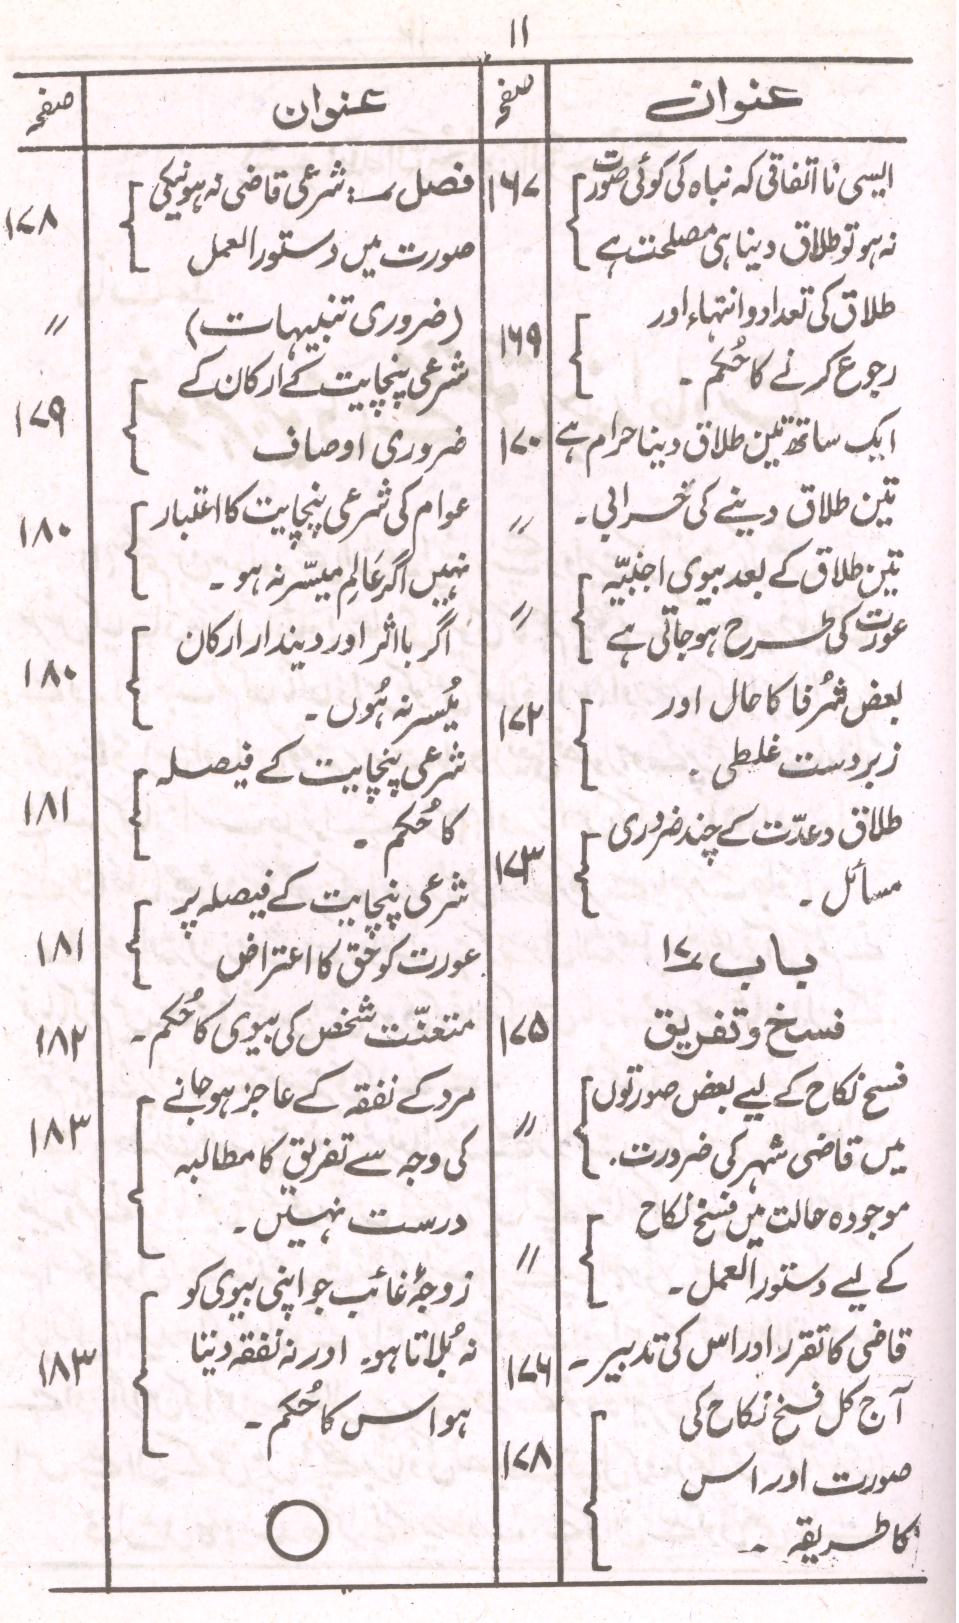 ۱۱
عنوان
صفحہ
ایسی نا اتفاقی کہ نباہ کی کوئی صورت
نہ ہو تو طلاق دینا ہی مصلحت ہے
۱۶۷
طلاق کی تعداد و انتہاء اور
رجوع کرنے کا حُکم ۔
۱۶۹
ایک ساتھ تین طلاق دینا حرام ہے
۱۷۰
تین طلاق دینے کی خرابی ۔
〃
تین طلاق کے بعد بیوی اجنبیّہ
عورت کی طرح ہو جاتی ہے
〃
بعض شُرفا کا حال اور
زبردست غلطی ۔
۱۷۲
طلاق و عدّت کے چند ضروری
مسائل ۔
۱۷۳
باب ۱۷
فسخ و تفریق
۱۷۵
فسخ نکاح کے لیے بعض صورتوں
میں قاضی شہر کی ضرورت ۔
〃
موجودہ حالت میں فسخ نکاح
کے لیے دستور العمل ۔
〃
قاضی کا تقرر اور اس کی تدبیر ۔
۱۷۶
آج کل فسخ نکاح کی
صورت اور اس
کا طریقہ ۔
۱۷۸
عنوان
صفحہ
فصل : شرعی قاضی نہ ہونیکی
صورت میں دستور العمل
۱۷۸
(ضروری تنبیہات)
〃
شرعی پنچایت کے ارکان کے
ضروری اوصاف
۱۷۹
عوام کی شرعی پنچایت کا اعتبار
نہیں اگر عَالِم میسّر نہ ہو ۔
۱۸۰
اگر با اثر اور دیندار ارکان
مُیسر نہ ہُوں ۔
۱۸۰
شرعی پنچایت کے فیصلہ
کا حُکم ۔
۱۸۱
شرعی پنچایت کے فیصلہ پر
عورت کو حق کا اعتراض
۱۸۱
متعنّت شخص کی بیوی کا حُکم ۔
۱۸۲
مرد کے نفقہ کے عاجز ہو جانے
کی وجہ سے تفریق کا مطالبہ
درست نہیں ۔
۱۸۳
زوجۂ غائب جو اپنی بیوی کو
نہ بُلاتا ہو۔ اور نہ نفقہ دیتا
ہو اس کا حُکم ۔
۱۸۳